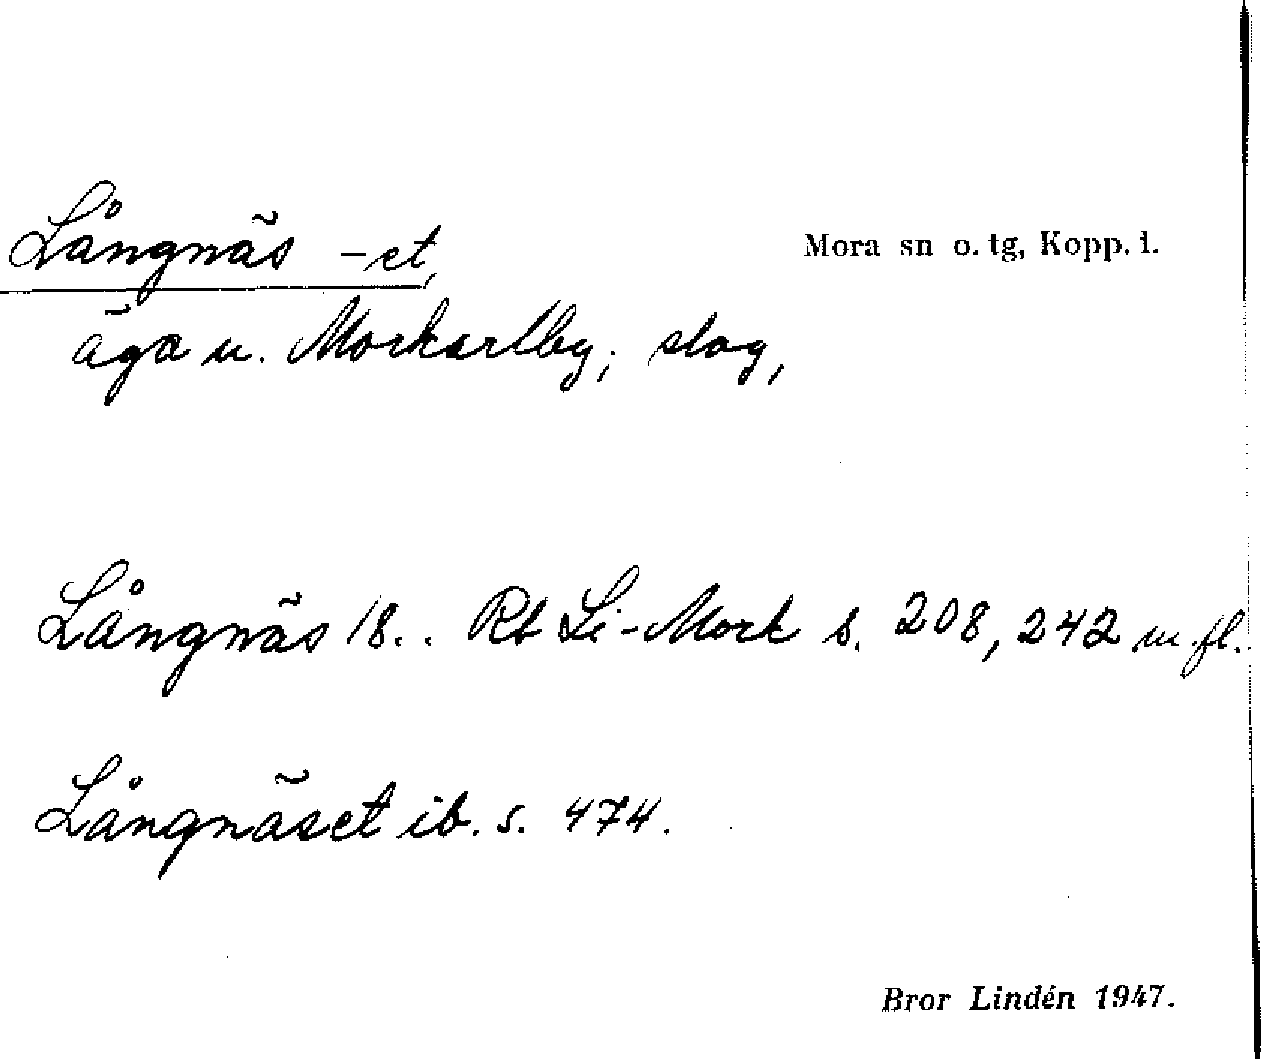 Långnäs -et,
Mora sn o. tg, Kopp. l.
äga u. Morkarlby; slog,
Långnäs 18.. Rb Li-Mork s. 208, 242 m. fl.
Långnäset ib. s. 474.
Bror Lindén 1947.